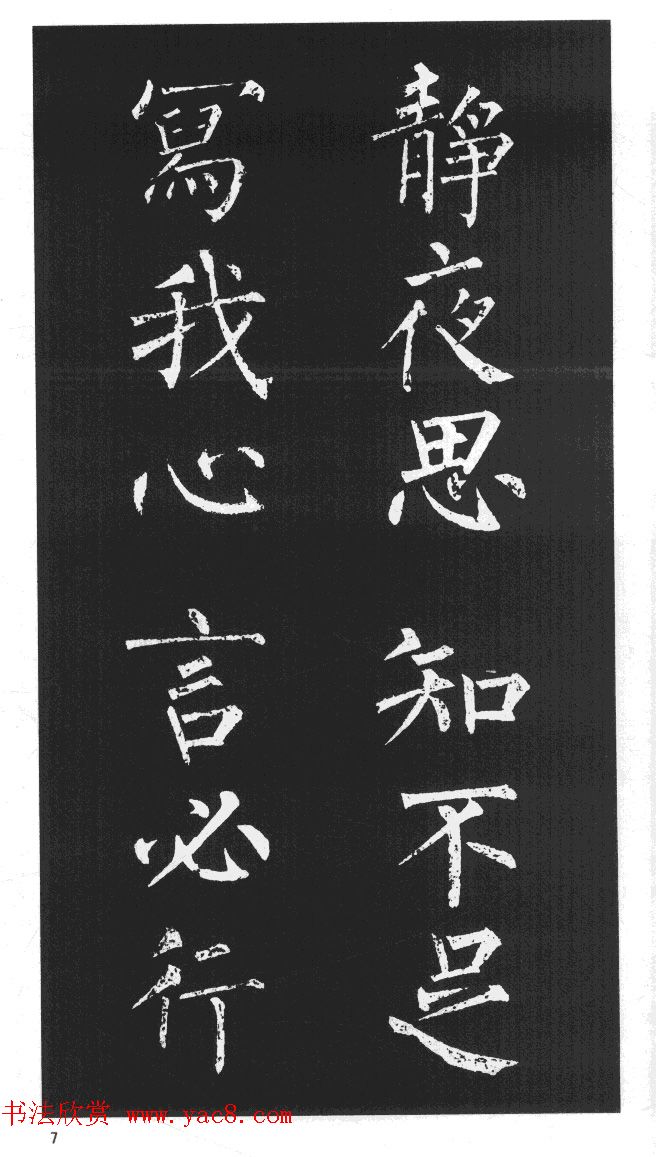 静夜思 知不足
冩我心 言必行
书法欣赏 www.yac8.com
7